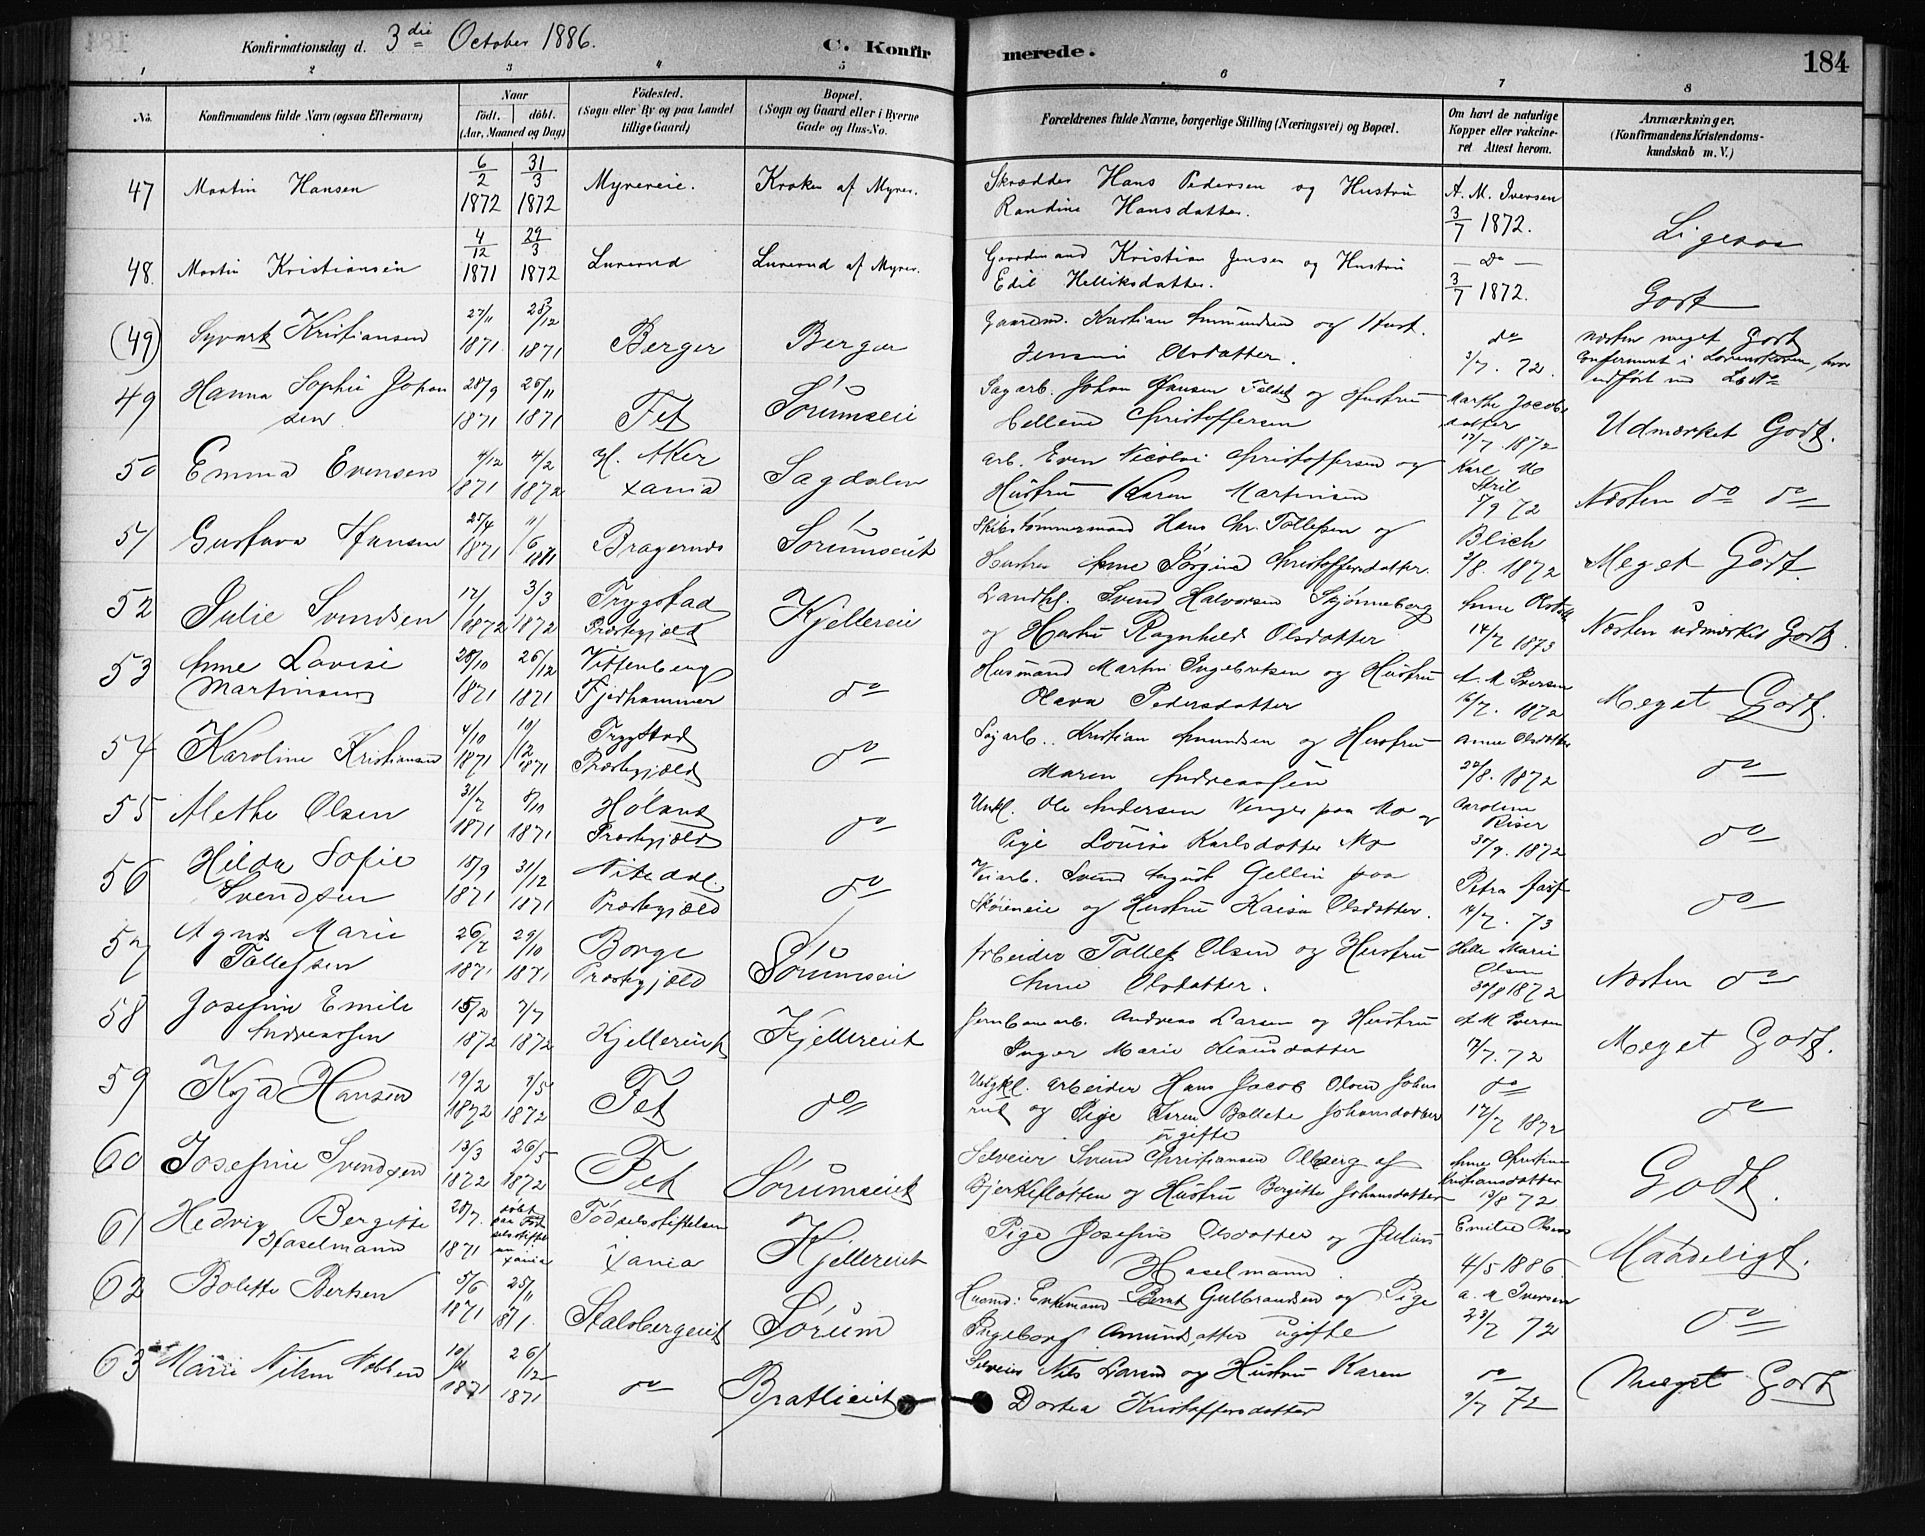 Konfirmationsdag d. 3die October 1886. C. Konfirmerede. 184
1 2 3 4 5 6 7 8
No. Konfirmandens fulde Navn (ogsaa Efternavn) Naar födt. döbt. (Aar, Maaned og Dag) Födested. (Sogn eller By og paa Landet tillige Gaard) Bopæl. (Sogn og Gaard eller i Byerne Gade og Hus-No. Forældrenes fulde Navne, borgerlige Stilling (Næringsvei) og Bopæl. Om havt de naturlige Kopper eller vakcineret Attest herom. Anmærkninger. (Konfirmandens Kristendomskundskab m. V.)
47 Martin Hansen 6/2 1872 31/3 1872 Myrereie. Kroken af Myrer. Skrædder Hans Pedersen og Hustru Randine Hansdatter. A. M. Iversen 3/7 1872. Ligesaa
48. Martin Kristiansen 4/12 1871 29/3 1872 Lurerud Lurerud af Myrer. Gaardmand Kristian Jensen og Hustru Edil Helliksdatter. — Do — 3/7 1872. Godt
(49) Syvart Kristiansen 27/11 1871 28/12 1871 Berger Berger Gaardm. Kristian Amundsen og Hust. Olsdatter. do 3/7. 72. næsten meget Godt
49 Hanna Sophie Johansen 28/9 1871 26/11 1871 Fet Sørumseie Sagarb. Johan Hansen og Hustru Hellene Christoffersen Marthe Jacobsdatter 17/7 1872 Udmærket Godt.
50 Emma Evensen 4/12 1871 4/2 1872 V. Aker Xania Sagdalen Arb. Even Nicolai Christoffersen og Hustru Karen Martinsen Karl M 7/9 72 Næsten do do
51 Gustava Hansen 25/4 1871 11/6 1871 Bragernes Sørumseiet Skibstømmermand Hans Chr. Tollefsen og Hustru Anne Jørgine Christoffersdatter. Blich 2/8. 1872 Meget Godt.
52 Julie Svendsen 17/1 1872 3/3 1872 Trygstad Præstegjæld Kjellereie Landhl. Svend Halvorsen Skjønneberg og Hustru Ragnhild Olsdatter Anne Olsdatt 14/7 1873 Næsten udmærket Godt.
53 Anne Lovise Martinsen 28/10 1871 26/12 1871 Vittenberg Fjedhammer do Husmand Martin Ingebretsen og Hustru Olava Pedersdatter A. M Iversen 16/7. 1872 Meget Godt.
54 Karoline Kristiansen 4/10 1871 10/12 1871 Trygstad Præstegjæld do Sagarb. Kristian Amundsen og Hustru Maren Andreassen Anne Olsdatter 22/8. 1872 do
55 Methe Olsen 31/7 1871 8/10 1871 Høland Præstegjæld do Ole Andersen Venger paa Mo og Pige Lovise Karlsdatter Mo Karoline Riser 30/9. 1872 do
56 Hilda Sofie Svendsen 18/9 1871 31/12 1871 Nitedal Præstegjæld do Veiarb. Svend August Gellin paa Skøieneie og Hustru Kaisa Olsdatter. Petra 14/7. 73 do
57 Agnes Marie Tollefsen 26/7 1871 29/10 1871 Borge Præstegjæld Sørumseie Arbeider Tollef Olsen og Hustru Anne Olsdatter. Helle Marie Olsen 30/8 1872 Næsten do
58 Josefine Emilie Andreassen 15/2 1872 7/7 1872 Kjellereiet Kjellereiet Jernbanearb. Andreas Larsen og Hustru Inger Marie Klausdatter A M Iversen 17/7. 72 Meget Godt.
59 Kaja Hansen 19/2 1872 9/5 1872 Fet do Ungkl. arbeider Hans Jacob Olsen Johnsrud og Pige Iren Bollete Johansdatter ugifte do 17/7 1872 do
60 Josefine Svendsen 13/3 1872 26/5 1872 Fet Sørumseiet Selveier Svend Christiansen Olberg af Bjerkesletten og Hustru Bergitte Johansdatter Anne Christine Kristiansdatter 13/8 72 Godt.
61 Hedvig Bergitte Haselmann 28/7. 1871 døbt paa Fødselsstiftelsen Xania Fødselsstiftelsen Xania Kjellereiet Pige Josefine Olsdatter og Julius Haselmann Emilie Olsen 4/5 1886. Maadeligt.
62 Bolette Berntsen 5/6 1871 25/11 1871. Stalsbergeiet Sørum Husmd: Enkemand Bernt Gulbrandsen og Pige Ingeborg Amundsdatter ugifte A. M Iversen 23/7 72 do
63 Marie Nilsen Nebben 10/11 1871 26/12 1871 do Bratlieiet Selveier Nils Larsen og Hustru Karen Dortea Kristoffersdatter do 9/7 72 Meget Godt